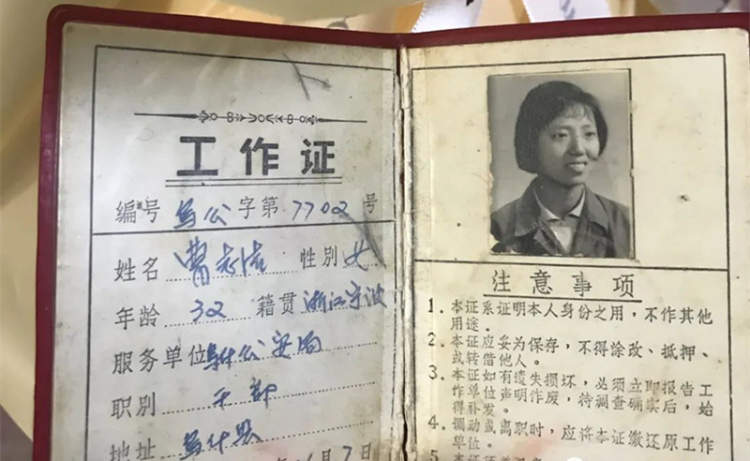 工作证
编号 乌公字第7702号
姓名 曹志 性别 女
年龄 32 籍贯 浙江宁波
服务单位 公安局
职别 干部
地址 乌什县
注意事项
1. 本证系证明本人身份之用，不作其他
用途。
2. 本证应妥为保存，不得涂改、抵押、
或转借他人。
3. 本证如有遗失损坏，必须立即报告工
作单位声明作废，待调查确实后，始
得补发。
4. 调动或离职时，应将本证缴还原工作
单位。